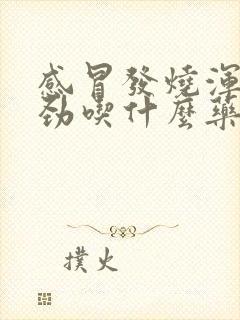 感冒發燒渾
勁喫什麼藥
撲火